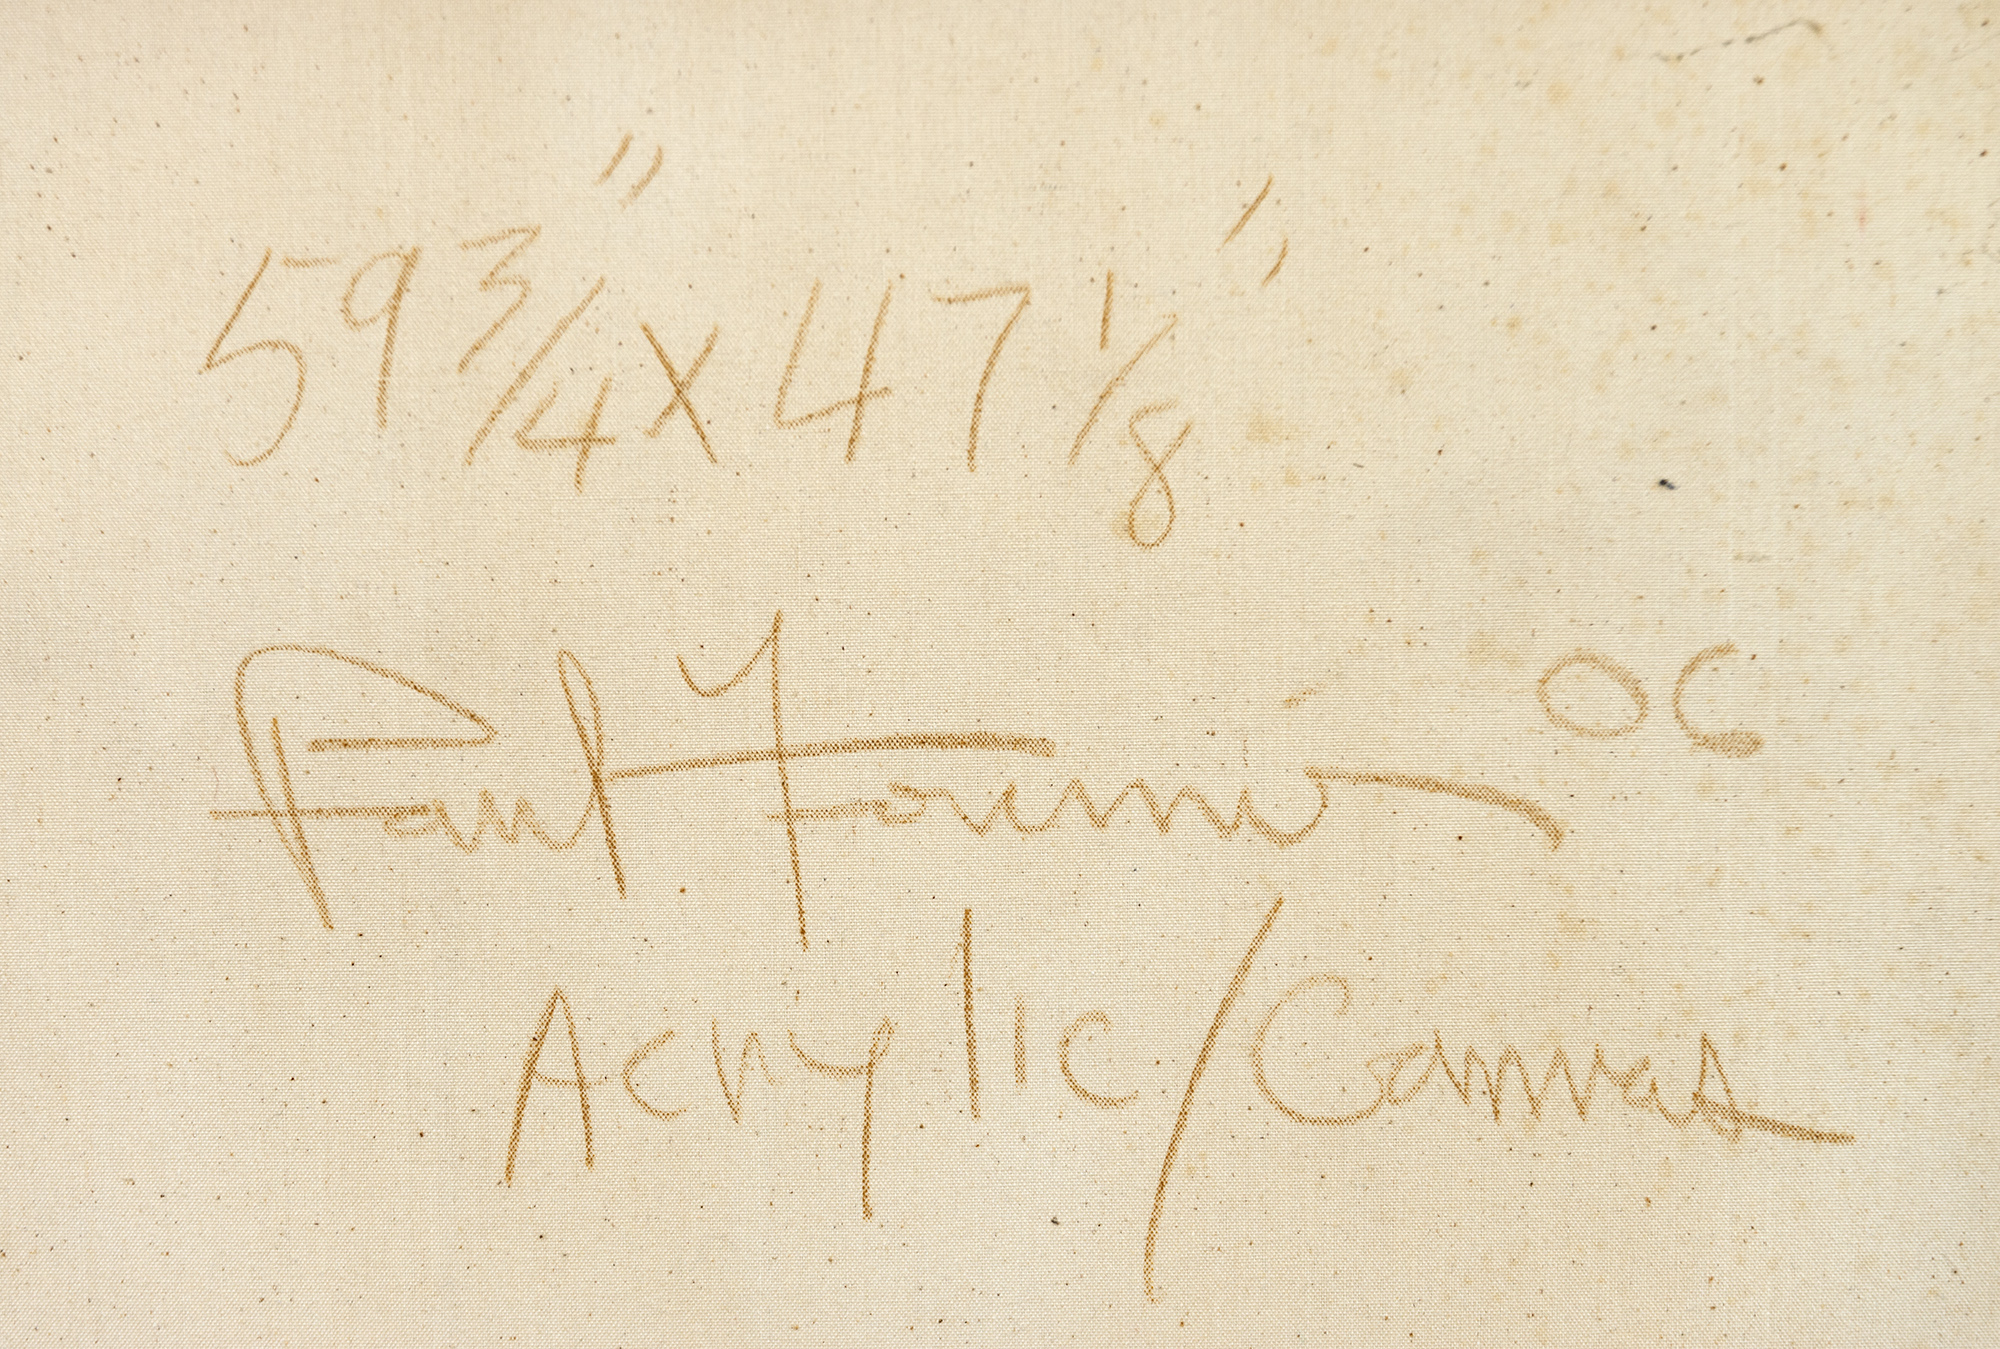 59 3/4" x 47 1/8"
Paul Fournier OC
Acrylic/Canvas